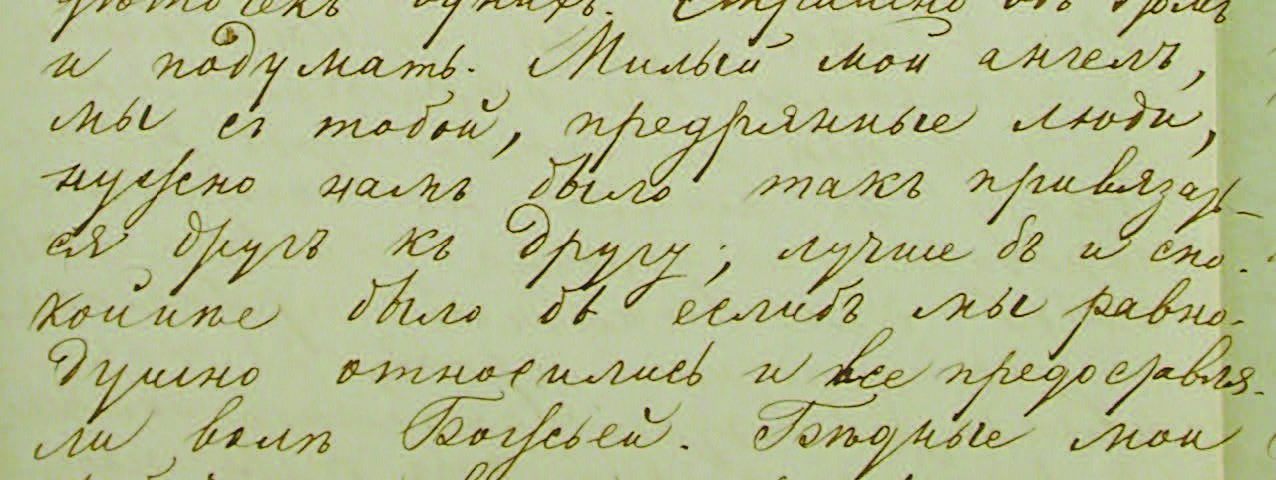 одинъ. Страшно объ этомъ
и подумать. Милый мой ангелъ,
мы съ тобой, предрянные люди,
нужно намъ было такъ привязать-
ся другъ къ другу; лучше бъ и спо-
койнѣе было бъ еслибъ мы равно-
душно относились и все предоставля-
ли волѣ Божьей. Бѣдные мои